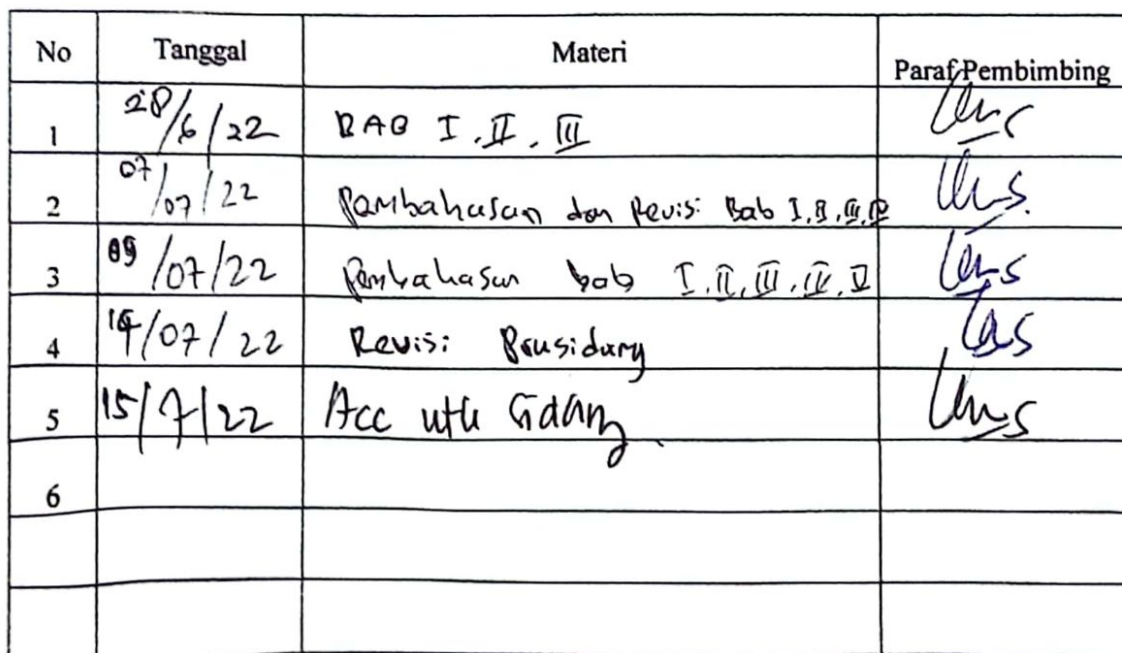 No Tanggal Materi Paraf Pembimbing
1 28/6/22 BAB I, II, III
2 07/07/22 Pembahasan dan Revisi Bab I, II, III, IV
3 09/07/22 Pembahasan bab I, II, III, IV, V
4 14/07/22 Revisi Prasidang
5 15/7/22 Acc utk Sidang.
6